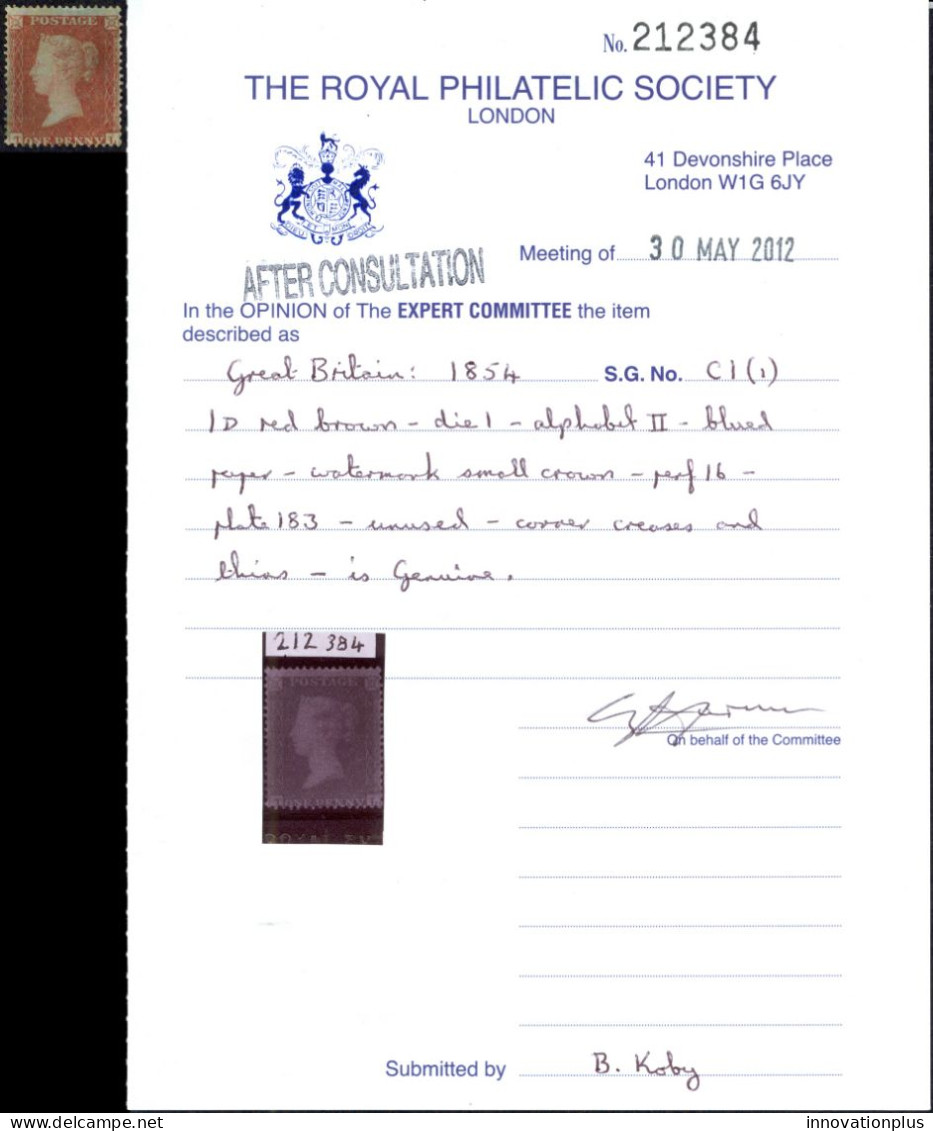 POSTAGE
ONE PENNY
No. 212384
THE ROYAL PHILATELIC SOCIETY
LONDON
41 Devonshire Place
London W1G 6JY
Meeting of 30 MAY 2012
AFTER CONSULTATION
In the OPINION of The EXPERT COMMITTEE the item
described as
Great Britain: 1854 S.G. No. C1(1)
1D red brown - die 1 - alphabet II - blued
paper - watermark small crown - perf 16 -
plate 183 - unused - corner creases and
thins - is Genuine.
212 384
POSTAGE
ONE PENNY
On behalf of the Committee
Submitted by B. Koby
innovationplus